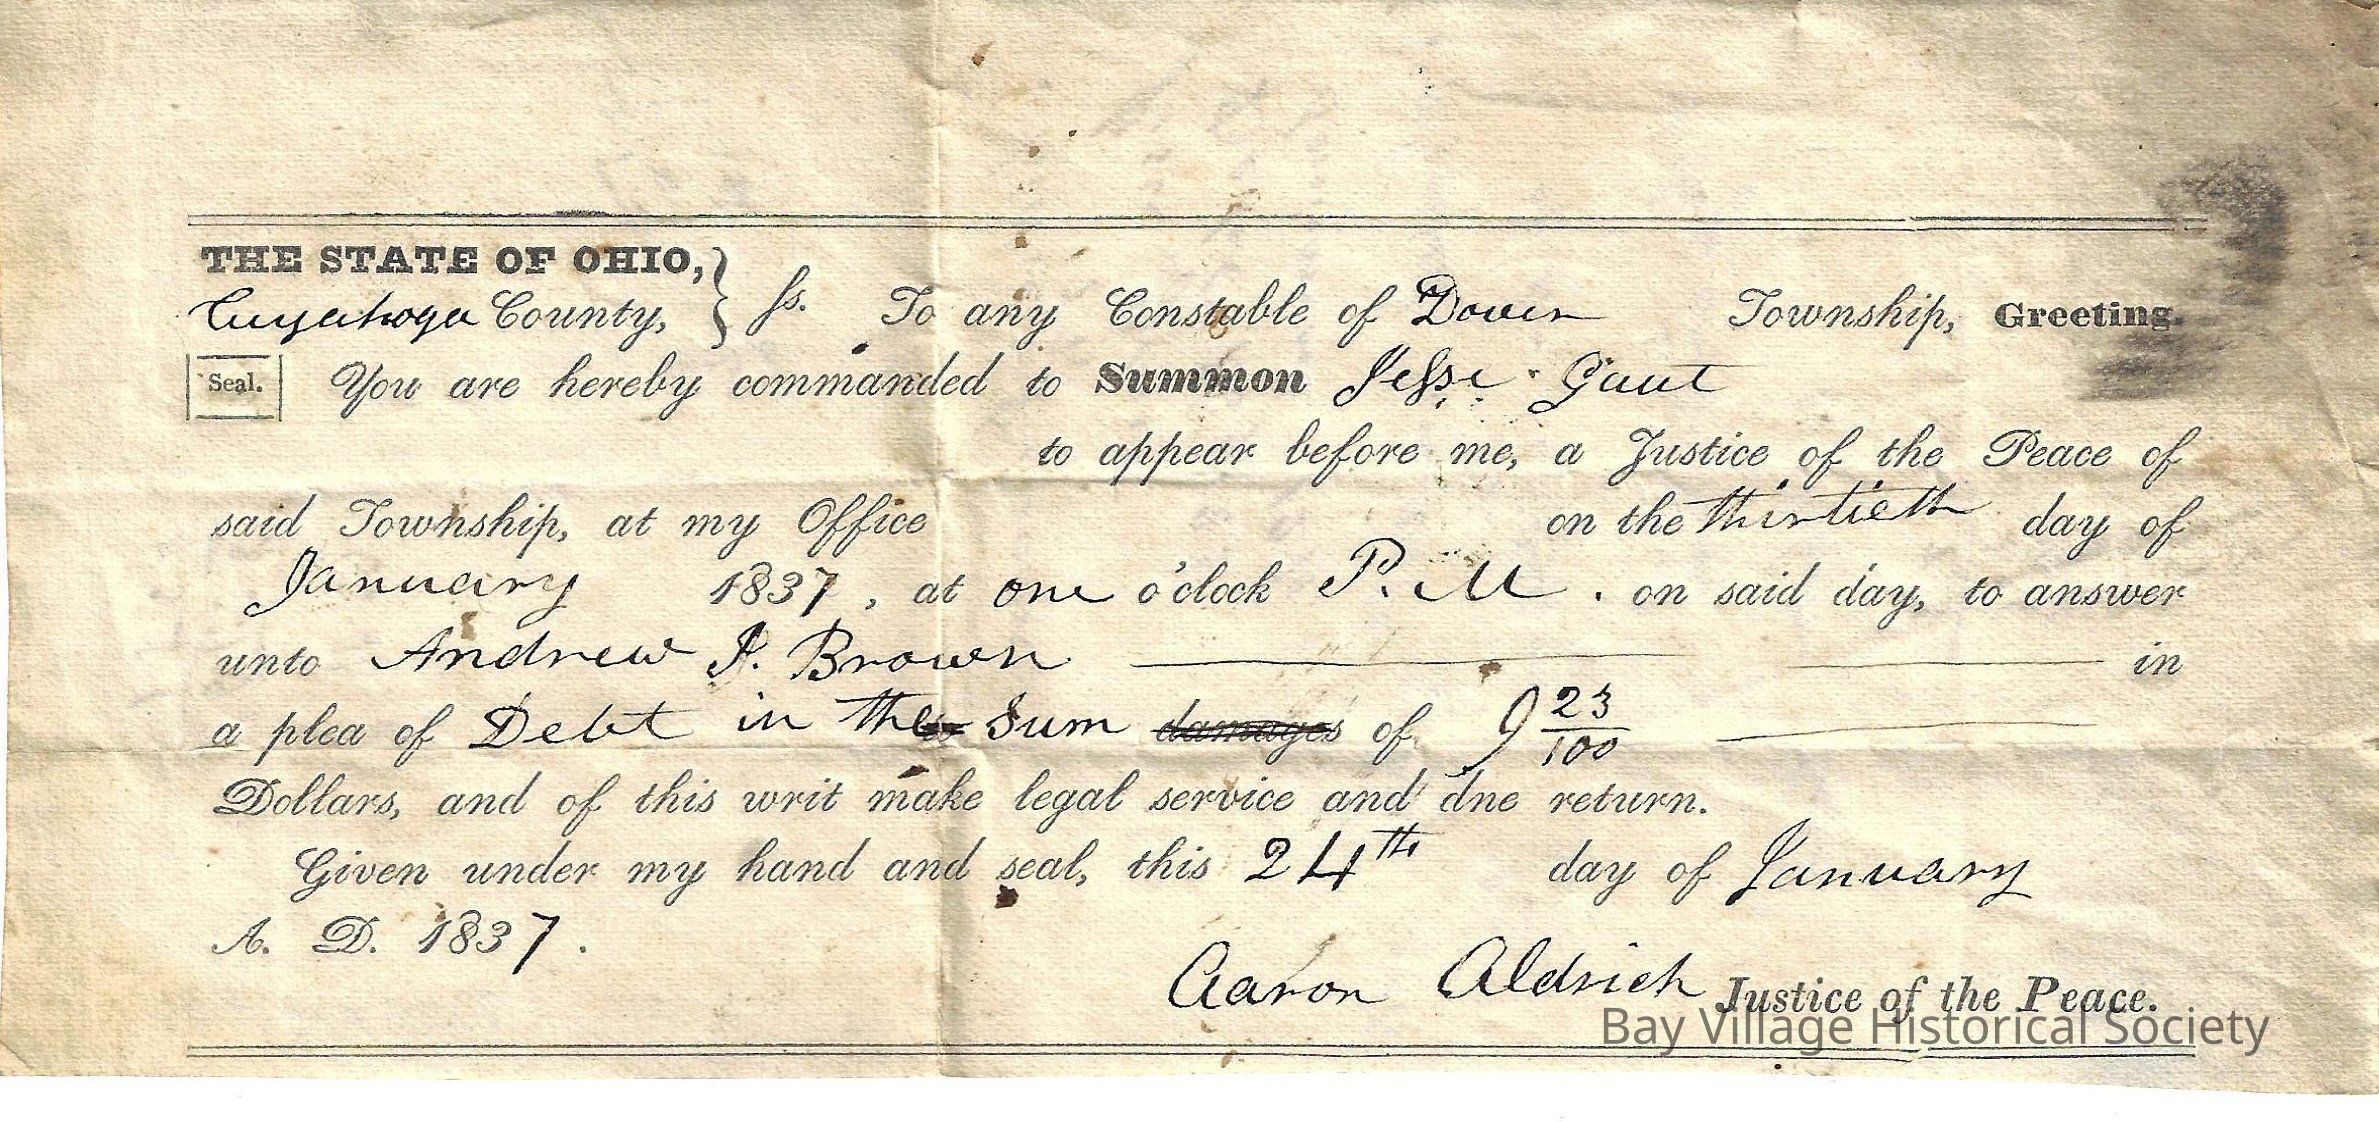 THE STATE OF OHIO,
Cuyahoga County, } ss. To any Constable of Dover Township, Greeting.
Seal. You are hereby commanded to Summon Jesse Gaut
to appear before me, a Justice of the Peace of
said Township, at my Office on the thirtieth day of
January 1837, at one o'clock P. M. on said day, to answer
unto Andrew J. Brown in
a plea of Debt in the Sum damages of 9 23/100
Dollars, and of this writ make legal service and dne return.
Given under my hand and seal, this 24th day of January
A. D. 1837.
Aaron Aldrich Justice of the Peace.
Bay Village Historical Society